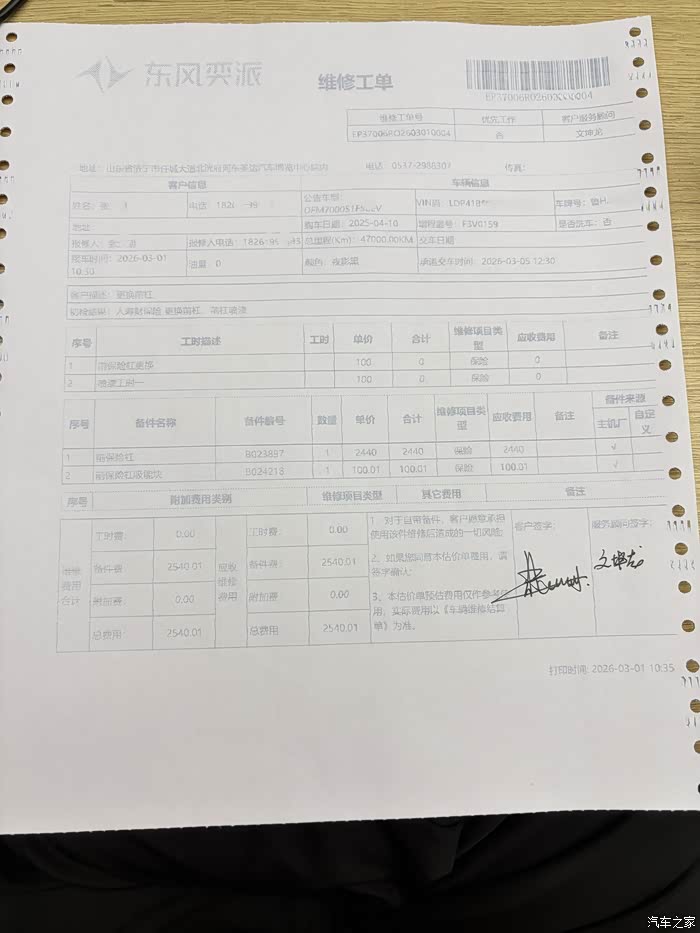 东风奕派
维修工单
维修工单号 优先工作 客户服务顾问
EP37006RO2603010004 否 文坤龙
地址: 电话: 0537-2988307 传真:
客户信息 车辆信息
姓名: 电话: 公告车型: VIN码: 车牌号: 鲁H.
地址: 购车日期: 2025-04-10 增程器号: F3V0159 是否洗车: 否
报修人: 报修人电话: 总里程(Km): 47000.00KM 交车日期
进车时间: 2026-03-01 10:30 油量: 0 颜色: 夜影黑 承诺交车时间: 2026-03-05 12:30
客户描述: 更换前杠
初检结果: 人寿财保险 更换前杠, 前杠喷漆
序号 工时描述 工时 单价 合计 维修项目类型 应收费用 备注
1 前保险杠更换 100 0 保险 0
2 100 0 保险 0
序号 备件名称 备件编号 数量 单价 合计 维修项目类型 应收费用 备注 备件来源
主机厂 自定义
1 前保险杠 B023897 1 2440 2440 保险 2440 √
2 前保险杠吸能块 B024218 1 100.01 100.01 保险 100.01 √
序号 附加费用类别 维修项目类型 其它费用 备注
维修费用合计 应收维修费用
工时费: 0.00 工时费: 0.00
备件费: 2540.01 备件费: 2540.01
附加费: 0.00 附加费: 0.00
总费用: 2540.01 总费用: 2540.01
1、对于自带备件, 客户愿意承担使用该件维修后造成的一切风险;
2、如果您同意本估价单费用, 请签字确认;
3、本估价单预估费用仅作参考使用, 实际费用以《车辆维修结算单》为准。
客户签字: 服务顾问签字:
文坤龙
打印时间: 2026-03-01 10:35
汽车之家